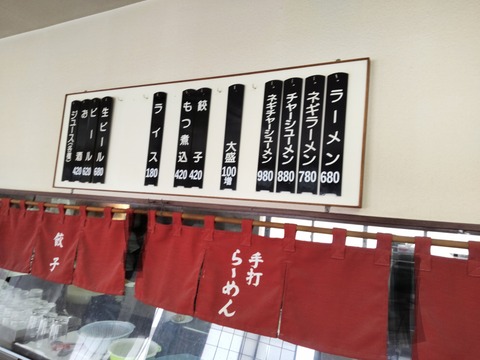 ラーメン 680
ネギラーメン 780
チャーシューメン 880
ネギチャーシューメン 980
大盛 100増
餃子 420
もつ煮込 420
ライス 180
生ビール 680
ビール 620
お酒 420
餃子
手打
らーめん